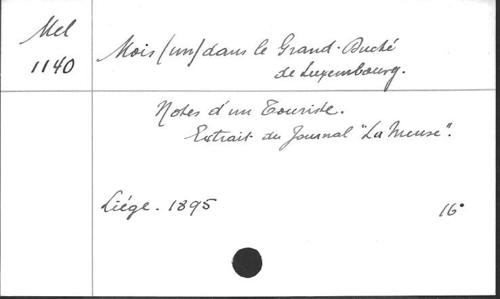 Mel
1140
Mois (un) dans le Grand-Duché
de Luxembourg.
Notes d'un Touriste.
Extrait du Journal "La Meuse".
Liége - 1895
16°